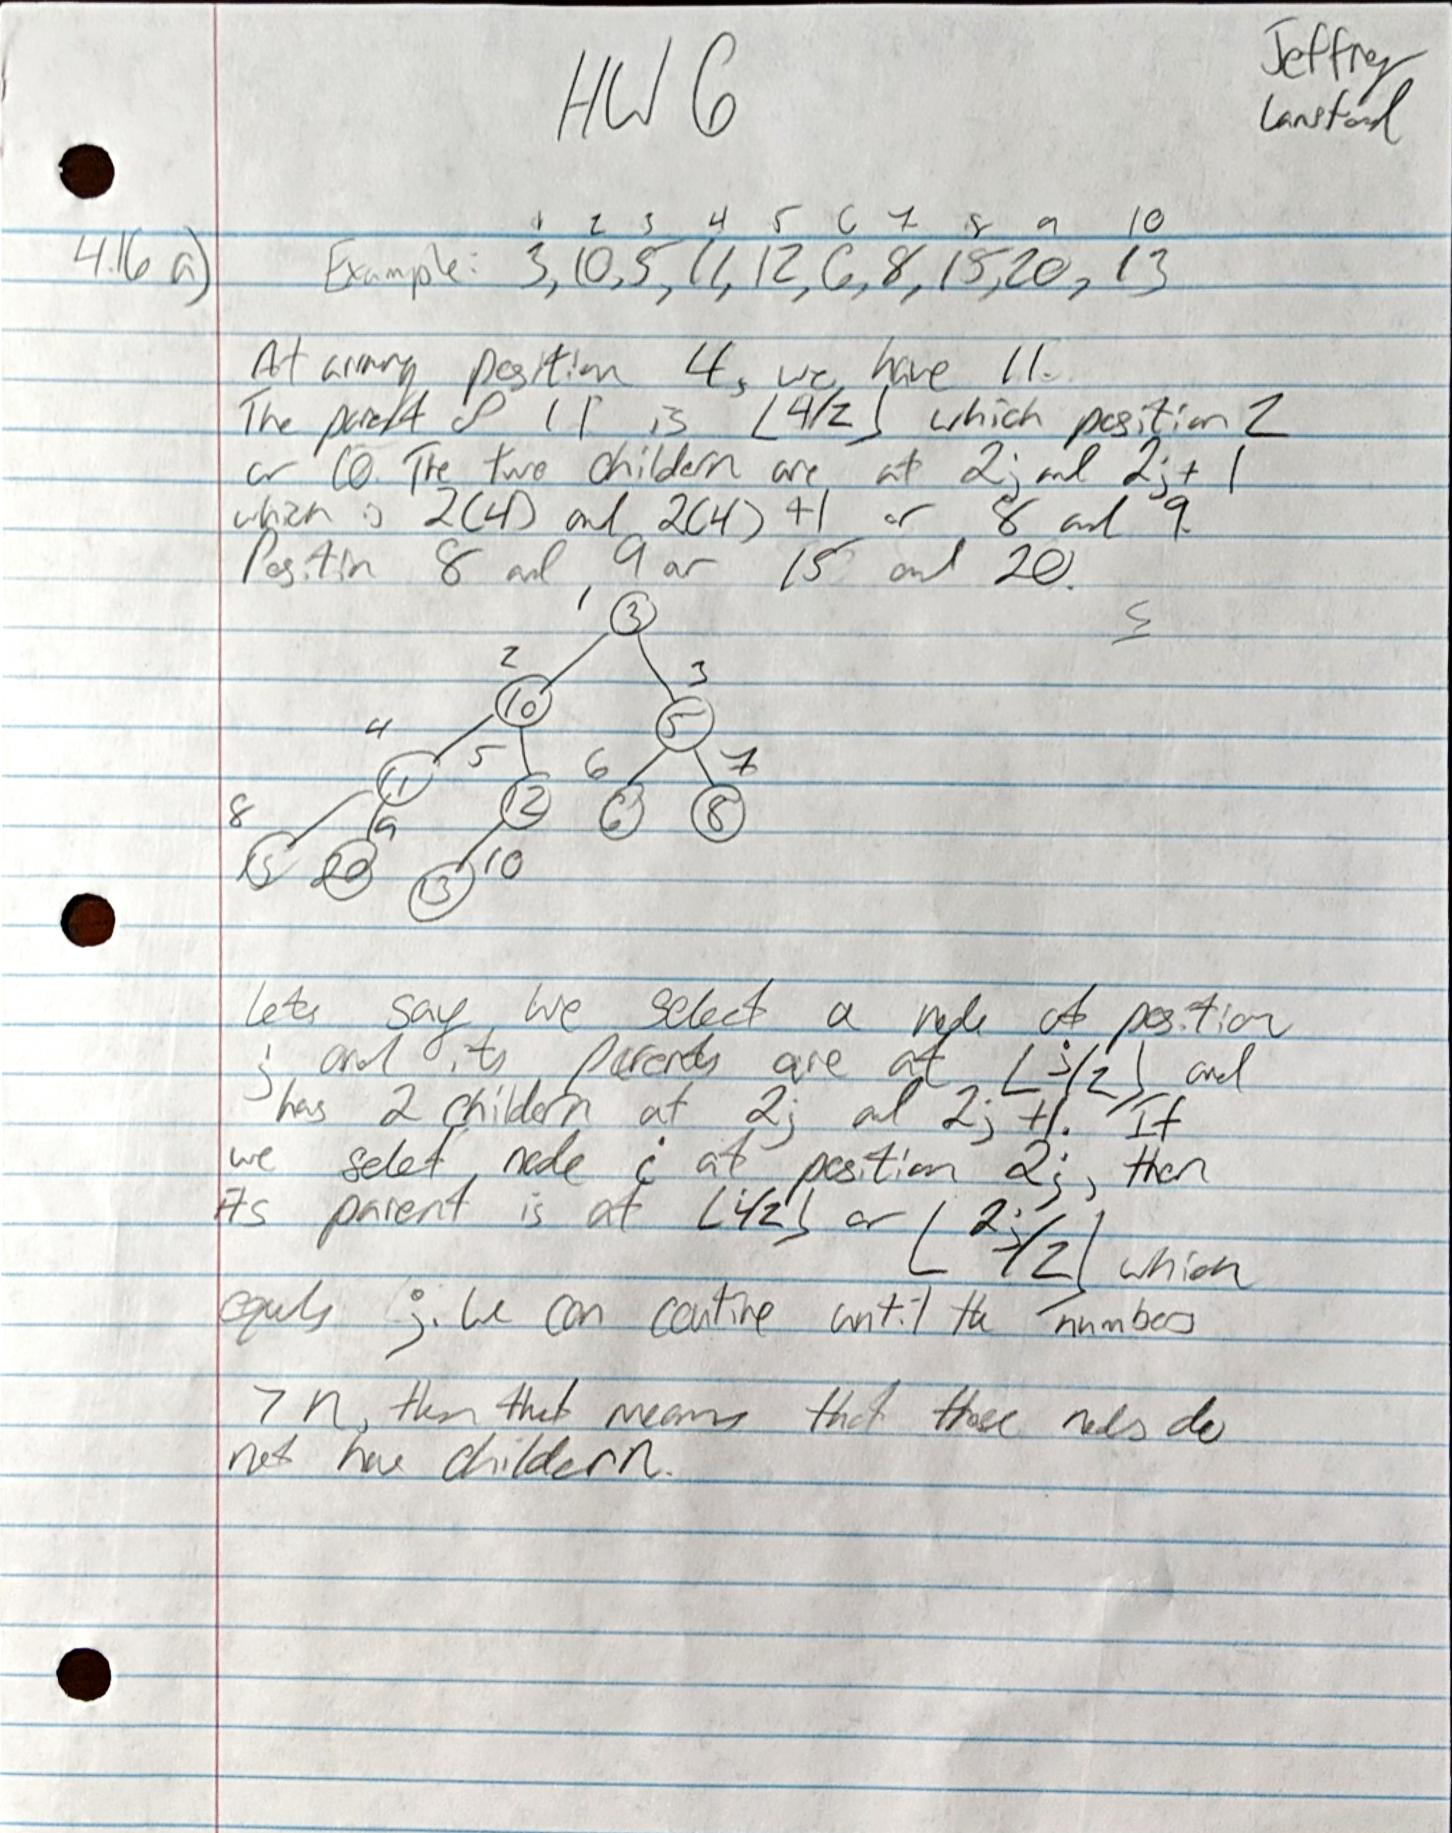 HW 6
Jeffrey
Lansford
1 2 3 4 5 6 7 8 9 10
4.16 a) Example: 3, 10, 5, 11, 12, 6, 8, 15, 20, 13
At array position 4, we have 11.
The parent of 11 is ⌊4/2⌋ which position 2
or 10. The two childern are at 2j and 2j + 1
which is 2(4) and 2(4) + 1 or 8 and 9.
Position 8 and 9 are 15 and 20.
1 3
2 3
10 5
4 5 6 7
11 12 6 8
8 9 10
15 20 13
Lets say we select a node at position
j and its parents are at ⌊j/2⌋ and
has 2 childern at 2j and 2j + 1. If
we select node i at position 2j, then
its parent is at ⌊i/2⌋ or ⌊2j/2⌋ which
equals j. We can continue until the numbers
> n, then that means that those nodes do
not have childern.